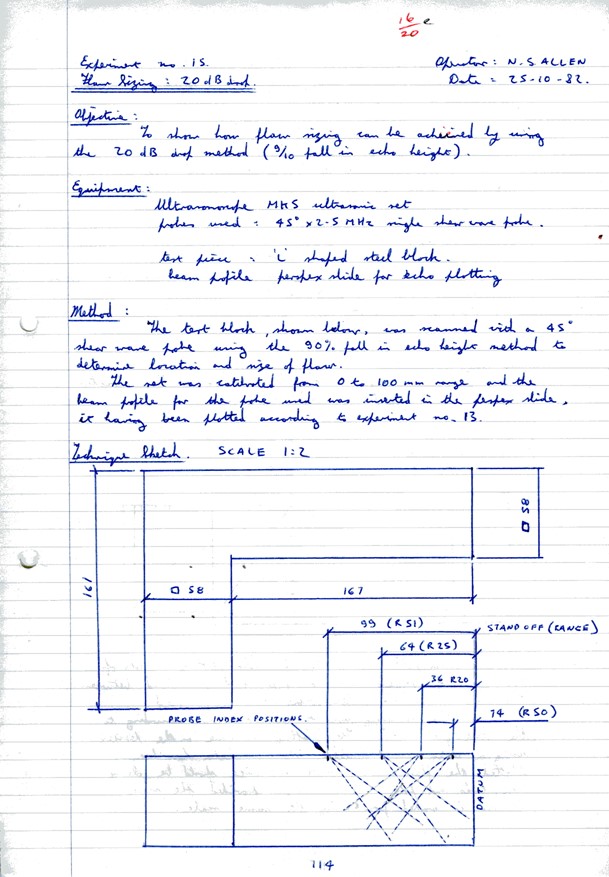 16/20 e
Experiment no. 15.
Operator: N. S ALLEN
Flaw Sizing: 20 dB drop.
Date = 25-10-82.
Objective:
To show how flaw sizing can be acheived by using
the 20 dB drop method (9/10 fall in echo height).
Equipment:
Ultrasonoscope MKS ultrasonic set
probes used = 45° x 2-5 MHz single shear wave probe.
test piece = 'L' shaped steel block.
beam pofile perspex slide for echo plotting
Method:
The test block, shown below, was scanned with a 45°
shear wave probe using the 90% fall in echo height method to
determine location and size of flaw.
The set was calibrated from 0 to 100 mm range and the
beam pofile for the probe used was inserted in the perspex slide,
it having been plotted according to experiment no. 13.
Technique Sketch. SCALE 1:2
□ 58
161
□ 58
167
99 (R 51)
STAND OFF (RANGE)
64 (R 25)
36 R20
14 (R 50)
PROBE INDEX POSITIONS.
DATUM
114